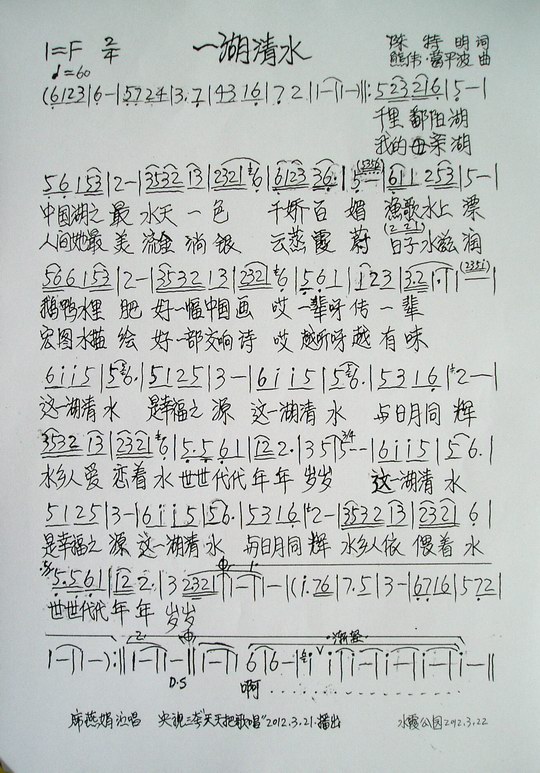 1=F 2/4 一湖清水 陈特明 词
♩=60 熊伟·管平波 曲
(6123|6-|5724|3.7|4316|72|1-|1-):||:523216|5-|
千里鄱阳湖
我的母亲湖
56153|2-|3532 13|2321 6|6123 36.|5-(5356)|611 253|5-|
中国湖之最 水天一色 千娇百媚 渔歌水上漂
人间她最美 流金淌银 云蒸霞蔚 (221) 日子水滋润
566153|2-|3532 13|2321 6|5.61|i23|3.2|1-|(235i)
鹅鸭水里肥 好一幅中国画 哎 一辈呀传一辈
宏图水描绘 好一部交响诗 哎 越听呀越有味
6ii5|56.|5125|3-|6ii5|56.|5316|2-|
这一湖清水 是幸福之源 这一湖清水 与日月同辉
3532 13|2321 6|5.561|122.|35|3/4 5--|6ii5|56.|
水乡人爱恋着水 世世代代年年岁岁 这一湖清水
5125|3-|6ii5|56.|5316|2-|3532 13|2321 6|
是幸福之源 这一湖清水 与日月同辉 水乡人依偎着水
5.561|122.|32321|1-|1-|(i.76|7.5|3-|6716|572|
世世代代年年岁岁
1-|1-):||1-|1-||1-|1-|66|6-|i|i-|i-|i-|i-|i-||
2. 渐慢
D.S 啊
席燕娟演唱 央视三套"天天把歌唱"2012.3.21.播出 水霞公园2012.3.22